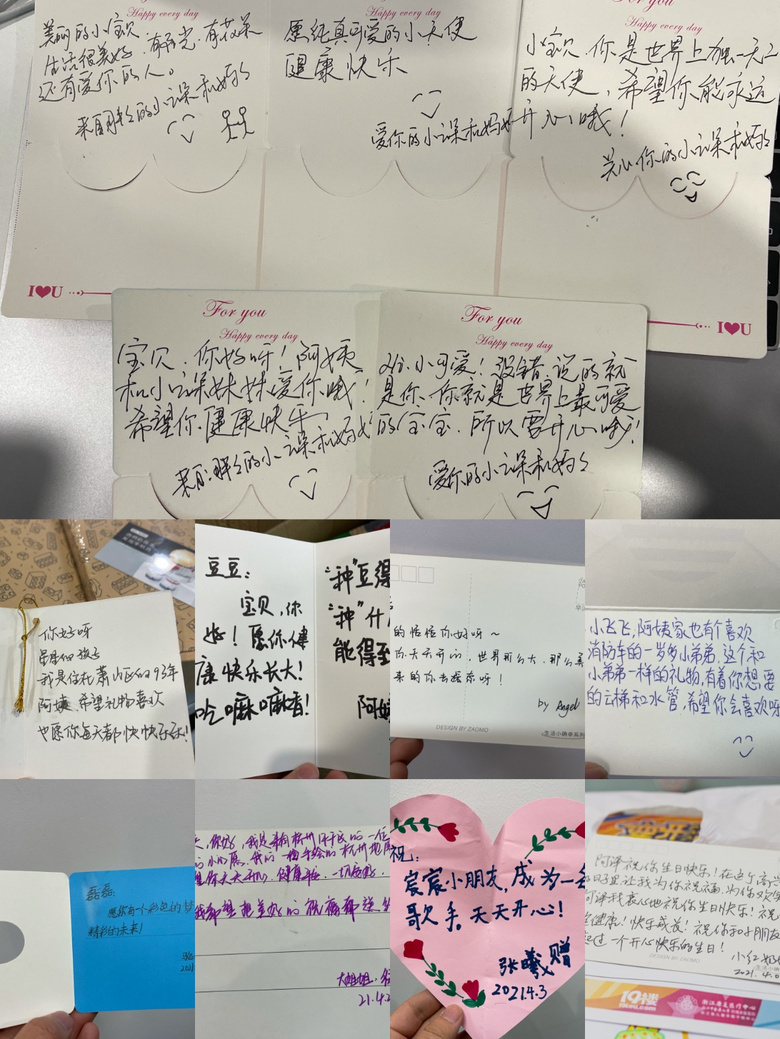 Happy every day
美丽的小宝贝
生活很美好,有阳光,有花朵
还有爱你的人。
Happy every day
愿纯真可爱的小天使
健康快乐
爱你的小深和妈妈
For you
小宝贝,你是世界上独一无二
的天使,希望你能永远
开心哦!
关心你的小深和妈妈
I❤U
I❤U
For you
Happy every day
宝贝,你好呀!阿姨
和小深妹妹爱你哦!
希望你健康快乐
For you
Happy every day
Hi,小可爱!没错,说的就
是你,你就是世界上最可爱
的宝宝,所以要开心哦!
爱你的小深和妈妈
你好呀
我是住在萧山区的93年
阿姨 希望礼物喜欢
也愿你每天都快快乐乐!
豆豆:
宝贝,你
好!愿你健
康快乐长大!
吃嘛嘛香!
"种"豆得
"种"什
能得到
阿姨
你好呀~
你天天开心,世界那么大,那么美
by Angel
DESIGN BY ZAOMO
小飞飞,阿姨家也有个喜欢
消防车的一岁多小弟弟,这个和
小弟弟一样的礼物,有着你想要
的云梯和水管,希望你会喜欢呀
磊磊:
愿你有个彩色的梦
精彩的未来!
2021
你好,我是来自杭州
天天开心,健康
希望把美好的祝福都送给
大姐姐
21.4.2
祝:
宸宸小朋友,成为一名
歌手,天天开心!
张曦赠
2021.4.3
阿泽祝你生日快乐!在这个高兴
日子里让我为你祝福,为你欢笑
祝你生日快乐!祝
健康!快乐成长!祝你和小朋友
过一个开心快乐的生日!
2021.4.0
DESIGN BY ZAOMO
19楼
19lou.com